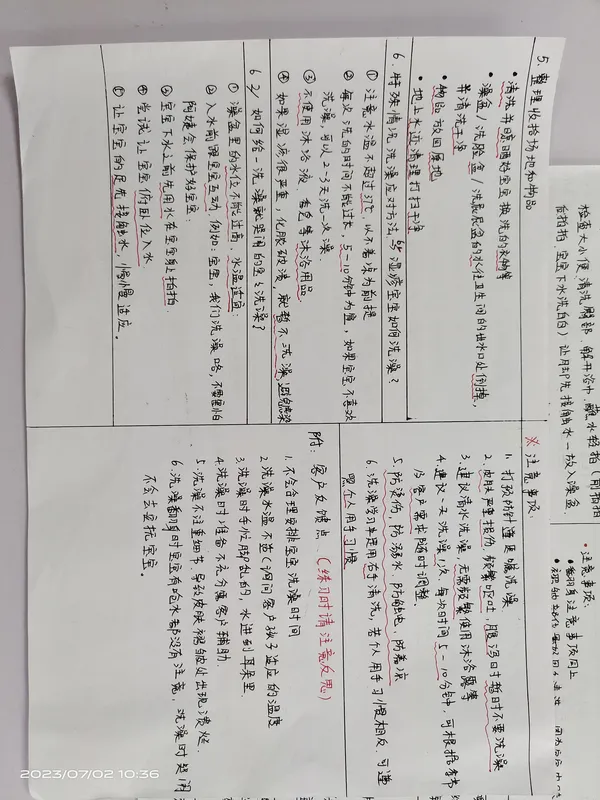 检查大小便 清洗臀部.解开浴巾.蘸水轻拍(前拍拍
后拍拍.宝宝下水洗白白)让
放入澡盆
5.整理收拾场地和物品
·清洗并晾晒好宝宝换洗的衣物等
·澡盆/洗脸盆/洗
的水往卫生间的出水口处倾掉,
并清洗干净
·物品放回原地
·地上水迹清理打扫干净
6.特殊情况洗澡应对方法
湿疹宝宝如何洗澡?
①注意水温不超过37℃,以不着凉为前提
②每次洗的时间不能过长,5-10分钟为宜,如果宝宝不喜欢
洗澡,可以2-3天洗一次澡.
③不使用沐浴液.香皂等沐浴用品.
④如果湿疹很严重,化脓破溃,就暂不洗澡,避免感染
6.2)如何给一洗澡就哭闹的宝宝洗澡?
①澡盆里的水位不能过高,水温适同:
②入水前跟宝宝互动,例如:宝宝,我们洗澡咯,不要害怕
阿姨会保护好宝宝:
③宝宝下水之前先用水在宝宝身上拍拍.
④尝试让宝宝俯卧位入水.
⑤让宝宝的足先接触水,慢慢适应.
·注意事项:
注意事项同上
※注意事项:
1.打预防针连更缓洗澡
2.皮肤严重损伤.频繁呕吐,腹泻时暂时不要洗澡
3.建议清水洗澡,无需频繁使用沐浴露等
4.建议1天洗澡1次,每次时间5-10分钟,可根据季节
及客户需求随时调整.
5.防烫伤,防溺水,防触电,防着凉
6.洗澡学习中是用右手清洗,若个人用手习惯相反,可遵
照个人用手习惯
附:客户反馈点.(练习时请注意反思)
1.不会合理安排宝宝洗澡时间
2.洗澡水温不适(询问客户孩子适应的温度
3.洗澡时手位脏乱的,水进到耳朵里.
4.洗澡时准备不充分要客户辅助.
5.洗澡不注重细节.导致皮肤褶皱处出现溃烂.
6.洗澡翻身时宝宝有呛水都没有注意,洗澡时哭闹
不会去安抚宝宝.
2023/07/02 10:36